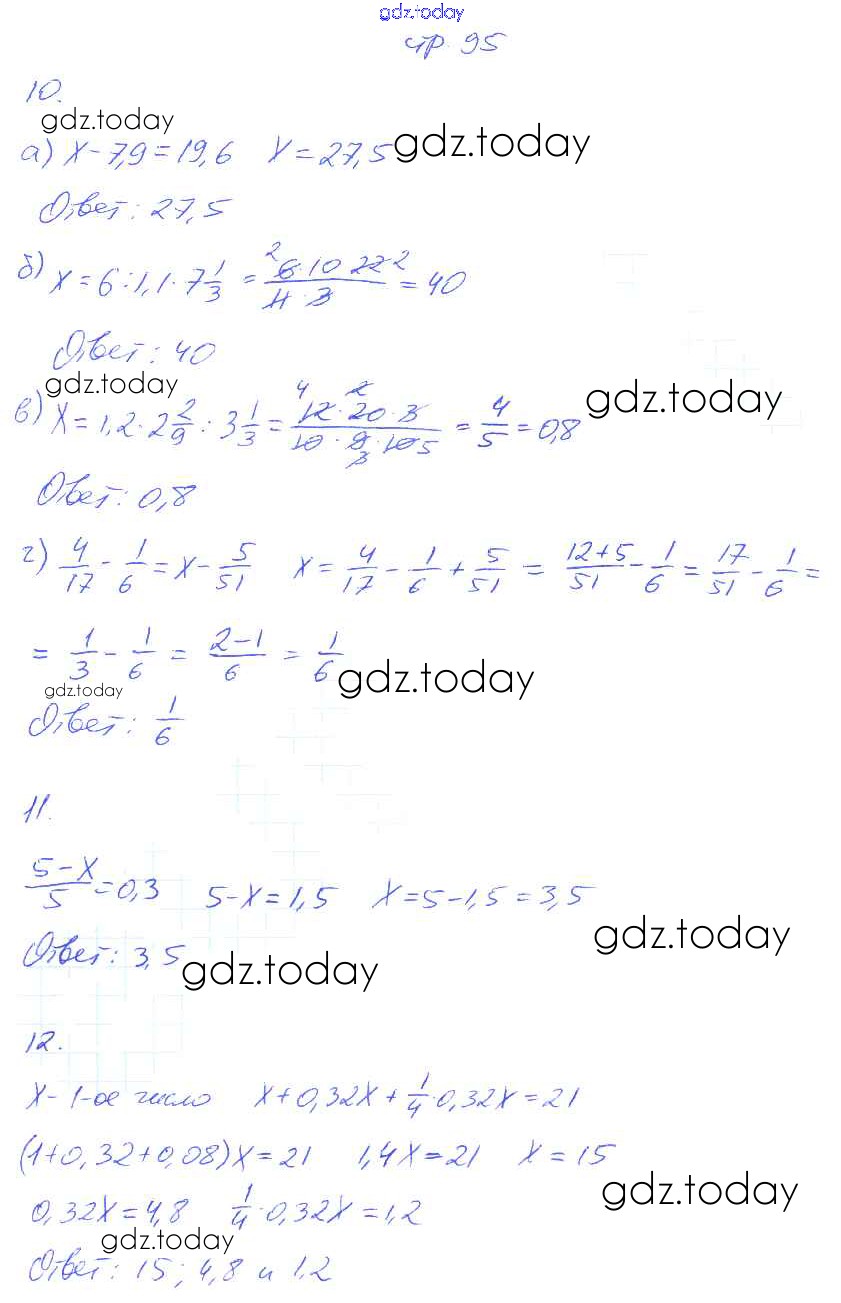 gdz.today
стр. 95
10.
gdz.today
а) x - 7,9 = 19,6 x = 27,5 gdz.today
Ответ: 27,5
б) x = 6 : 1,1 · 7 1/3 = (2 6 · 10 · 22 2)/(11 · 3) = 40
Ответ: 40
gdz.today gdz.today
в) x = 1,2 · 2 2/9 : 3 1/3 = (4 12 · 20 2 · 3)/(10 · 9 3 · 10 5) = 4/5 = 0,8
Ответ: 0,8
г) 4/17 - 1/6 = x - 5/51 x = 4/17 - 1/6 + 5/51 = (12+5)/51 - 1/6 = 17/51 - 1/6 =
= 1/3 - 1/6 = (2-1)/6 = 1/6 gdz.today
gdz.today
Ответ: 1/6
11.
(5-x)/5 = 0,3 5-x = 1,5 x = 5-1,5 = 3,5
gdz.today
Ответ: 3,5 gdz.today
12.
x - 1-ое число x + 0,32x + 1/4 · 0,32x = 21
(1+0,32+0,08)x = 21 1,4x = 21 x = 15
gdz.today
0,32x = 4,8 1/4 · 0,32x = 1,2
gdz.today
Ответ: 15; 4,8 и 1,2